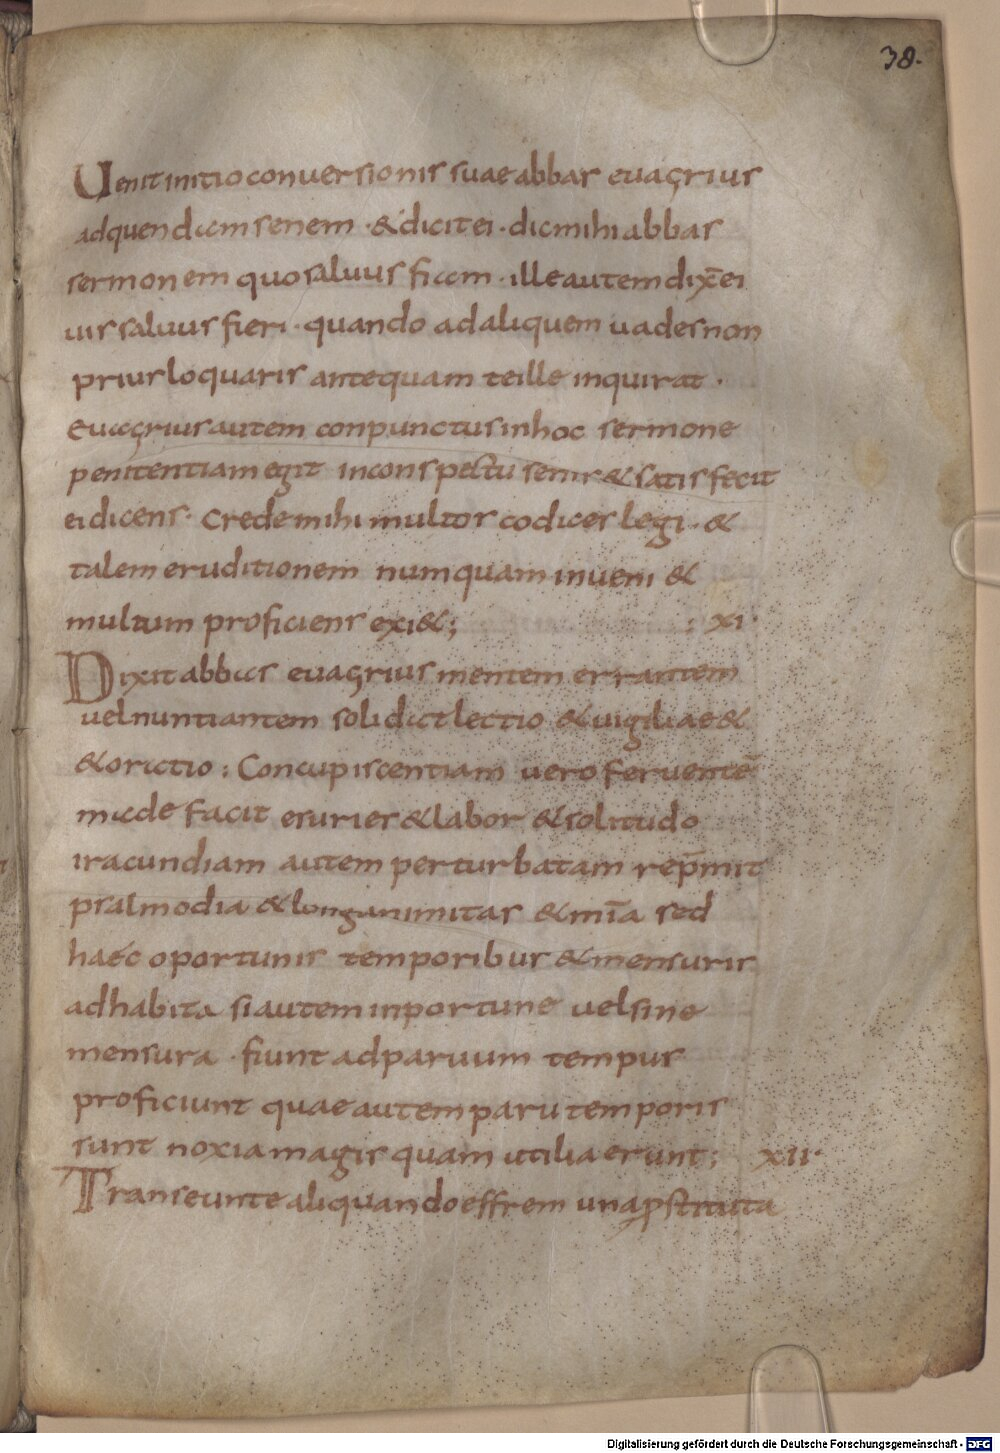 38.
Uenit initio conuersionis suae abbas euagrius
ad quendam senem · & dicit ei · dic mihi abbas
sermonem quo saluus fiam · ille autem dix̄ ei
uis saluus fieri · quando ad aliquem uades non
prius loquaris antequam te ille inquirat ·
Euagrius autem conpunctus in hoc sermone
penitentiam egit in conspectu senis & satisfecit
ei dicens · Crede mihi multos codices legi · &
talem eruditionem numquam inueni &
multum proficiens exi&; : XI ·
Dixit abbas euagrius mentem errantem
uel nuntiantem solidat lectio & uigiliae &
& oratio : Concupiscentiam uero feruentē
madefacit esuries & labor & solitudo
iracundiam autem perturbatam rep̄mit
psalmodia & longanimitas & mīa sed
haec oportunis temporibus & mensuris
adhabita si autem inportune uel sine
mensura · fiunt ad paruum tempus
proficiunt quae autem paru temporis
sunt noxia magis quam utilia erunt; XII ·
Transeunte aliquando effrem una ꝓstituta
Digitalisierung gefördert durch die Deutsche Forschungsgemeinschaft - DFG